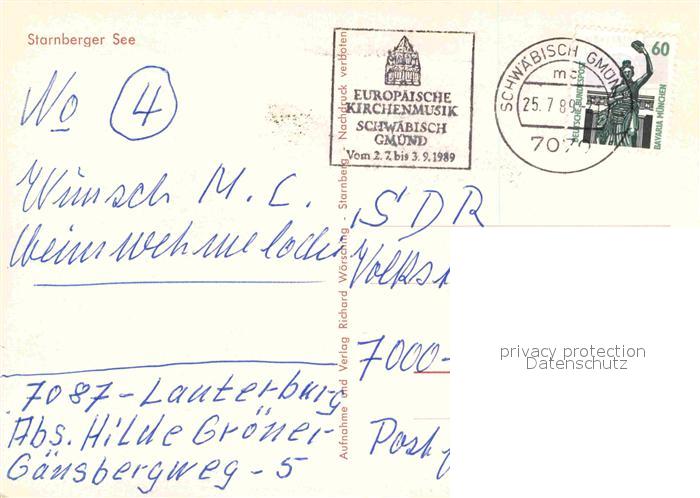 Starnberger See
No 4
Wunsch M. C.
7087-Lauterburg
Abs. Hilde Gröner
Gänsbergweg - 5
Aufnahme und Verlag Richard Wörsching - Starnberg Nachdruck verboten
EUROPÄISCHE
KIRCHENMUSIK
SCHWÄBISCH
GMÜND
Vom 2.7. bis 3.9.1989
SCHWÄBISCH GMÜN
mc
25.7.89
7070
60
DEUTSCHE BUNDESPOST
BAVARIA MÜNCHEN
SDR
Volks
7000-
Post
privacy protection
Datenschutz